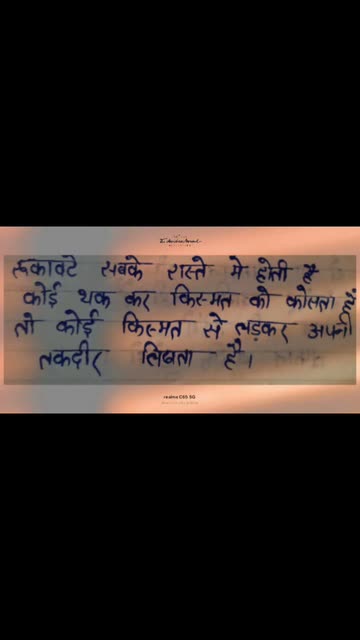 रूकावटे सबके रास्ते मे होती है
कोई थक कर किस्मत को कोसता हैं
तो कोई किस्मत से लड़कर अपनी
तकदीर लिखता है।
realme C65 5G